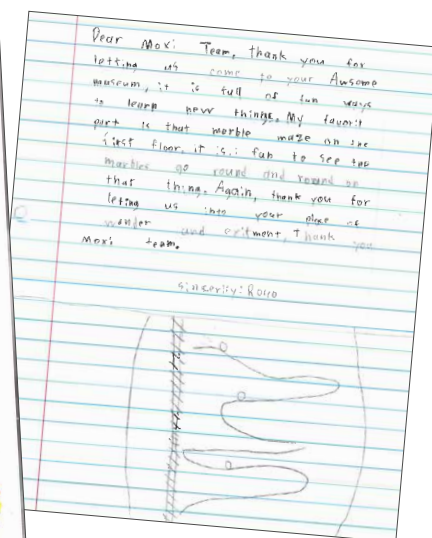 Dear Moxi Team, thank you for
letting us come to your Awsome
museum, it is full of fun ways
to learn new things. My favorit
part is that morble maze on the
first floor. it is fun to see the
marbles go round and round on
that thing. Again, thank you for
leting us into your place of
wonder and exitment, Thank you
Moxi team.
sinserily: Rollo